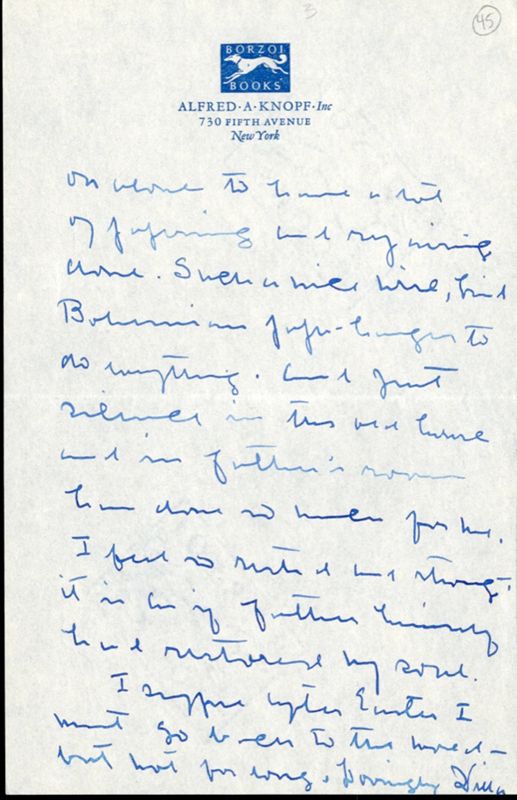 3
45
BORZOI
BOOKS
ALFRED · A · KNOPF · Inc
730 FIFTH AVENUE
New York
on alone to have a lot
of papering and repairing
done. Such a nice kind
Bohemian paper-hanger to
do everything. And just
silence in this old house
and in father's room
have done so much for me.
I feel so rested and strong-
it is as if father himself
had restored my soul.
I suppose after Easter I
must go back to the world -
but not for long. Lovingly Willa